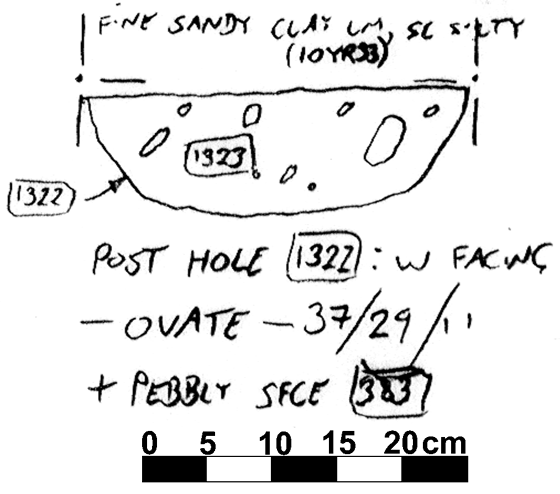 FINE SANDY CLAY LM, SC SILTY
(10YR33)
1323
1322
POST HOLE 1322 : W FACING
- OVATE - 37/29/11
+ PEBBLY SFCE 383
0 5 10 15 20cm